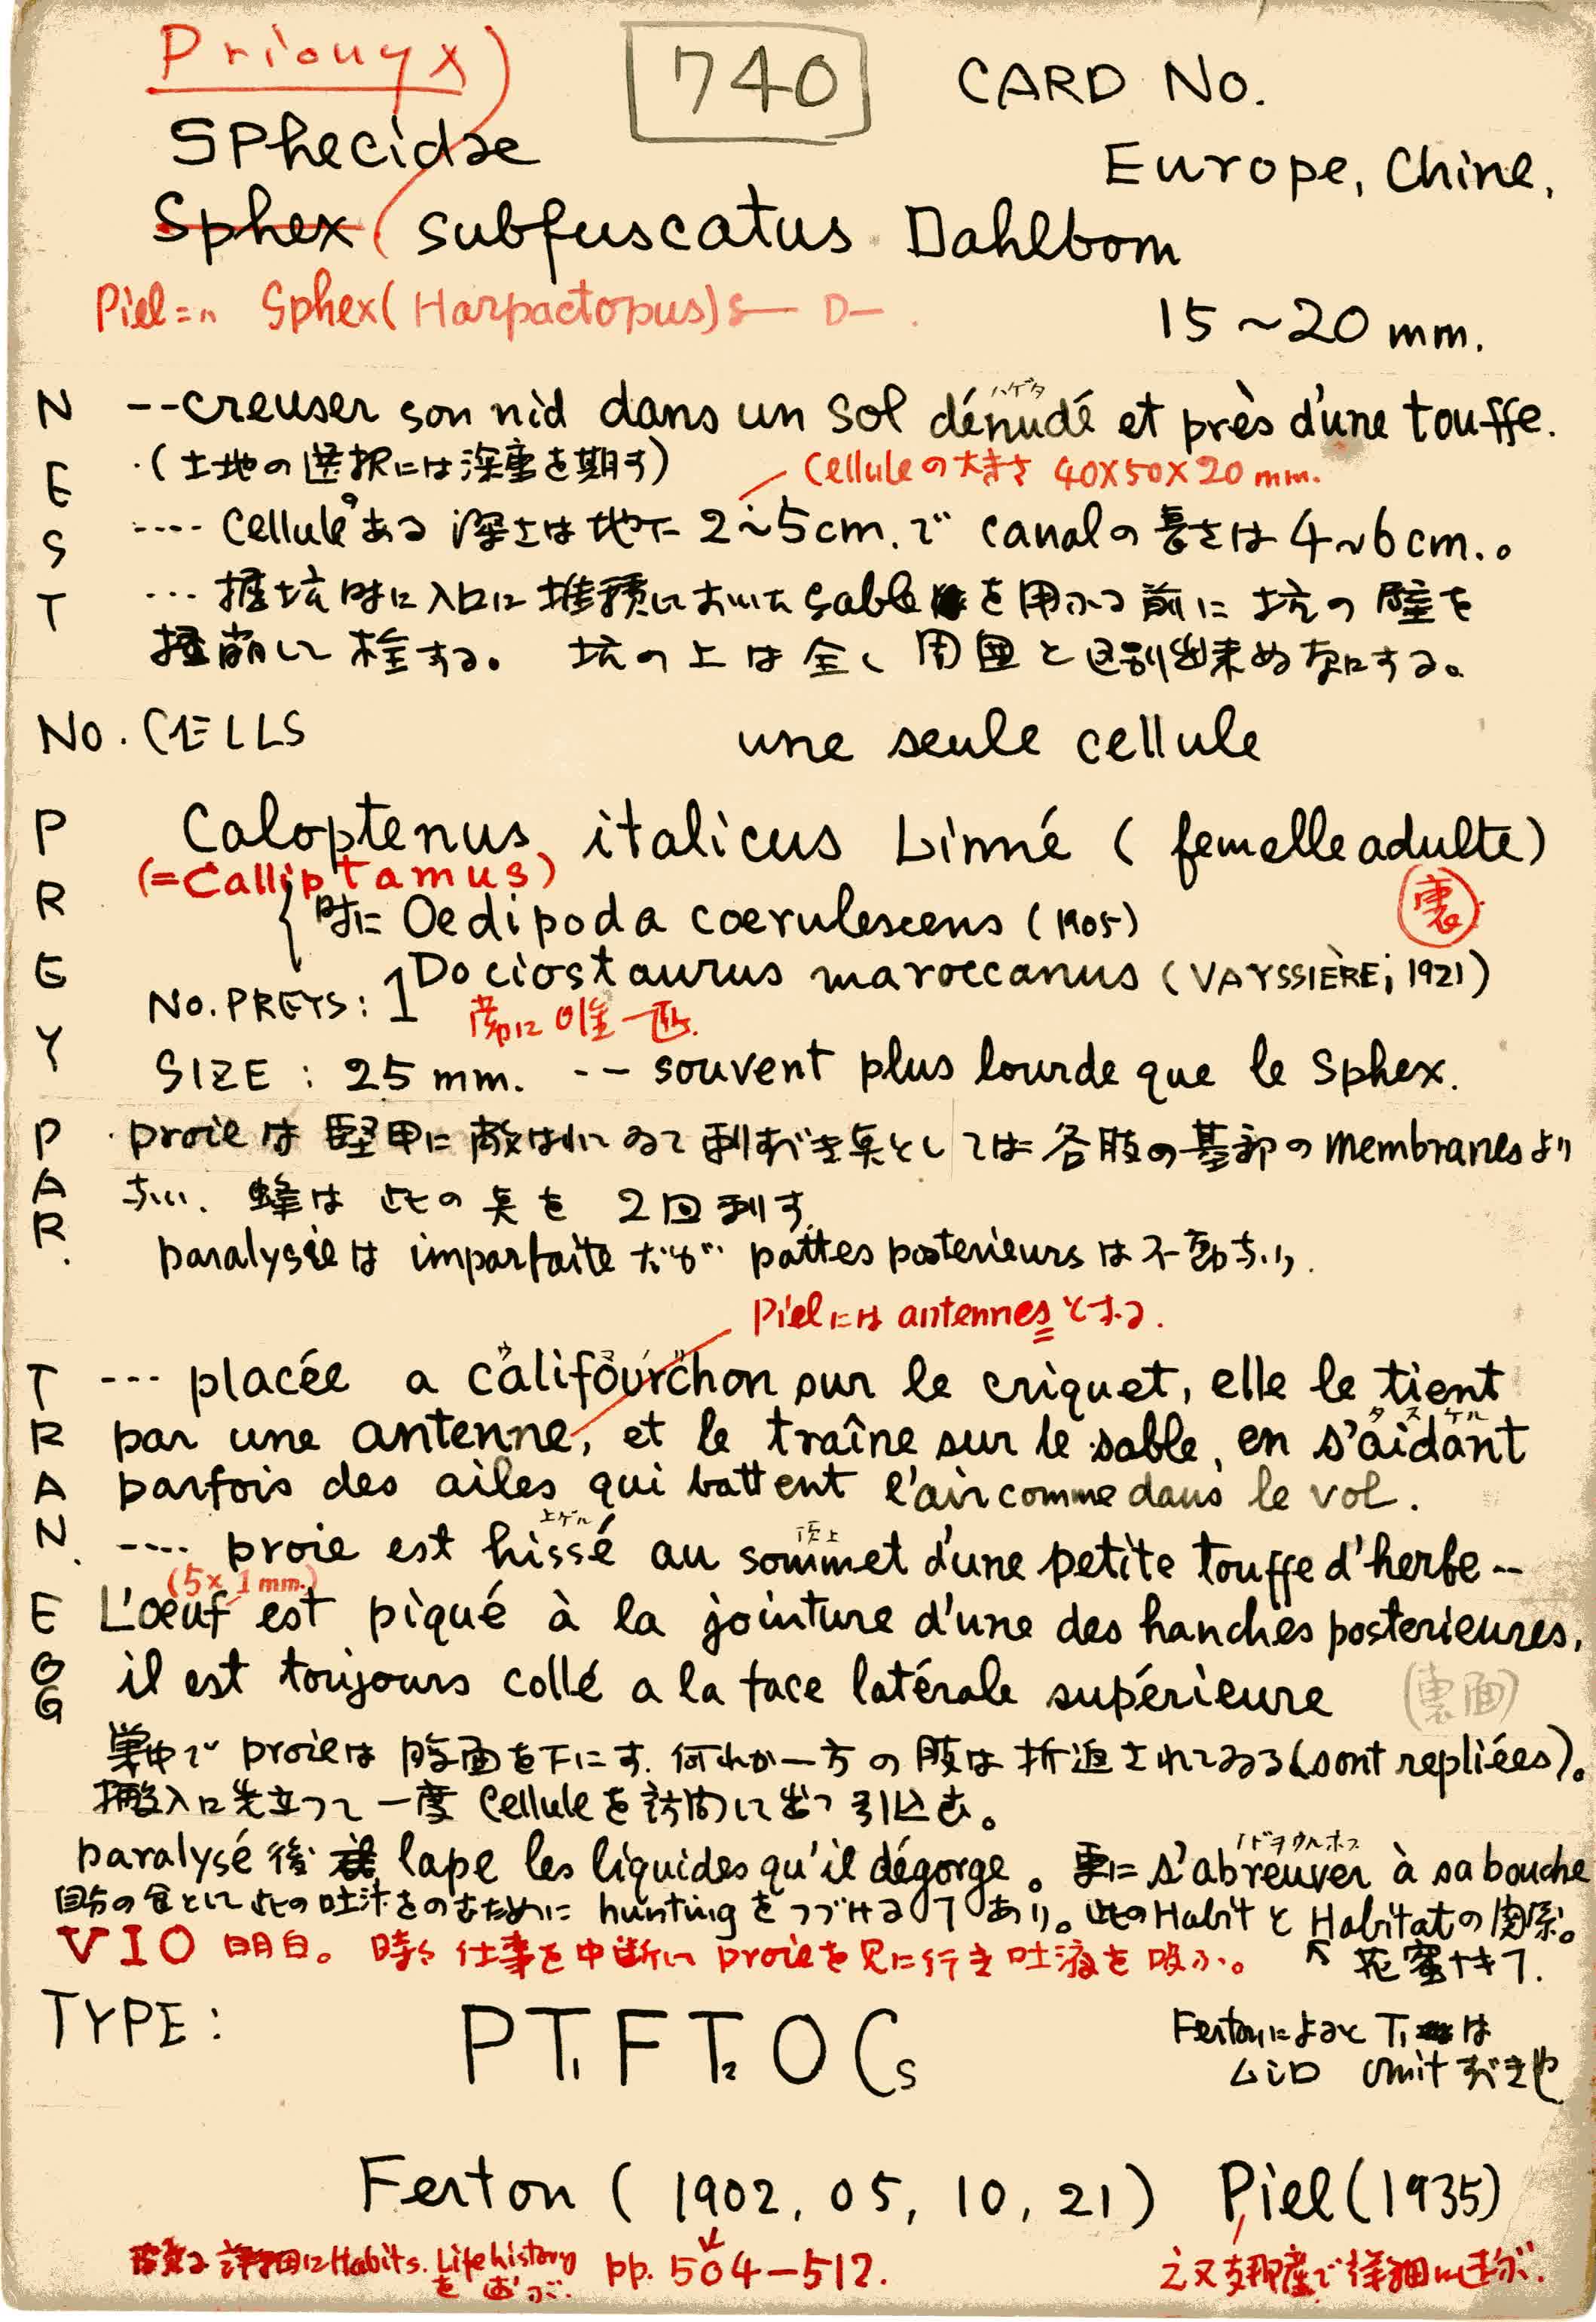 Prionyx)
740
CARD No.
Sphecidae
Europe, Chine,
Sphex (subfuscatus Dahlbom
Piel=n Sphex(Harpactopus) s— D— .
15~20 mm.
NEST
--creuser son nid dans un sol dénudé et près d'une touffe.
ハゲタ
(土地の選択には深重を期す)
Celluleの大きさ 40X50X20 mm.
---- Celluleのある深さは地下 2~5cm.で canalの長さは4~6cm.。
--- 掘坑時に入口に堆積しておいた sable を用ふる前に坑の壁を
崩して栓する。 坑の上は全く周囲と区別出来ぬ如にする。
No. CELLS
une seule cellule
PREY
Caloptenus italicus Linné ( femelle adulte)
(=Calliptamus)
裏
時に Oedipoda coerulescens (1905)
Dociostaurus maroccanus (VAYSSIÈRE; 1921)
No. PREYS: 1
常に唯一匹.
SIZE : 25 mm. -- souvent plus lourde que le Sphex.
PAR.
proieは堅甲に蔽はれてゐて刺すべき点としては各肢の基部のmembranesより
ない. 蜂は此の点を 2回刺す.
paralysieは imparfaite だが pattes posterieurs は不動なり.
Pielには antennes とする.
TRAN.
--- placée a califourchon sur le criquet, elle le tient
par une antenne, et le traîne sur le sable, en s'aidant
タスケル
parfois des ailes qui battent l'air comme dans le vol.
上ゲル
頂上
---- proie est hissé au sommet d'une petite touffe d'herbe --
(5x1mm.)
EGG
L'œuf est piqué à la jointure d'une des hanches posterieures,
il est toujours collé a la face latérale supérieure
(裏面)
巣中で proieは腹面を下にす. 何れか一方の肢は折返されてゐる(sont repliées)。
搬入に先立つて一度 Celluleを訪問して出て引込む。
paralysé 後 lape les liquides qu'il dégorge。更に s'abreuver à sa bouche
自分の食として此の吐汁をのむために huntingをつづけることあり。此のHabitと Habitatの関係。
VIO 明白。時々仕事を中断して proieを見に行き吐液を吸ふ。
↖花蜜ナキコト.
TYPE :
PT₁FT₂OCs
Fertonによると T₁ は
ムシロ omitすべき也
Ferton ( 1902, 05, 10, 21) Piel(1935)
詳細にHabits. Life history
を
pp. 504—512.
之又支那産で詳細に述ぶ.